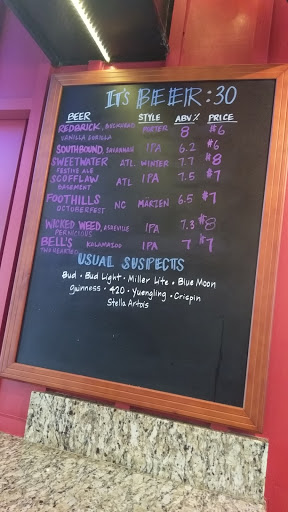 IT'S BEER:30
BEER STYLE ABV% PRICE
REDBRICK, PORTER 8 $6
VANILLA GORILLA
SOUTHBOUND, SAVANNAH IPA 6.2 $6
SWEETWATER ATL. WINTER 7.7 $8
FESTIVE ALE
SCOFFLAW ATL IPA 7.5 $7
BASEMENT
FOOTHILLS NC MÄRZEN 6.5 $7
OCTOBERFEST
WICKED WEED, ASHEVILLE IPA 7.3 $8
PERNICIOUS
BELL'S KALAMAZOO IPA 7 $7
TWO HEARTED
USUAL SUSPECTS
Bud • Bud Light • Miller Lite • Blue Moon
Guinness • 420 • Yuengling • Crispin
Stella Artois